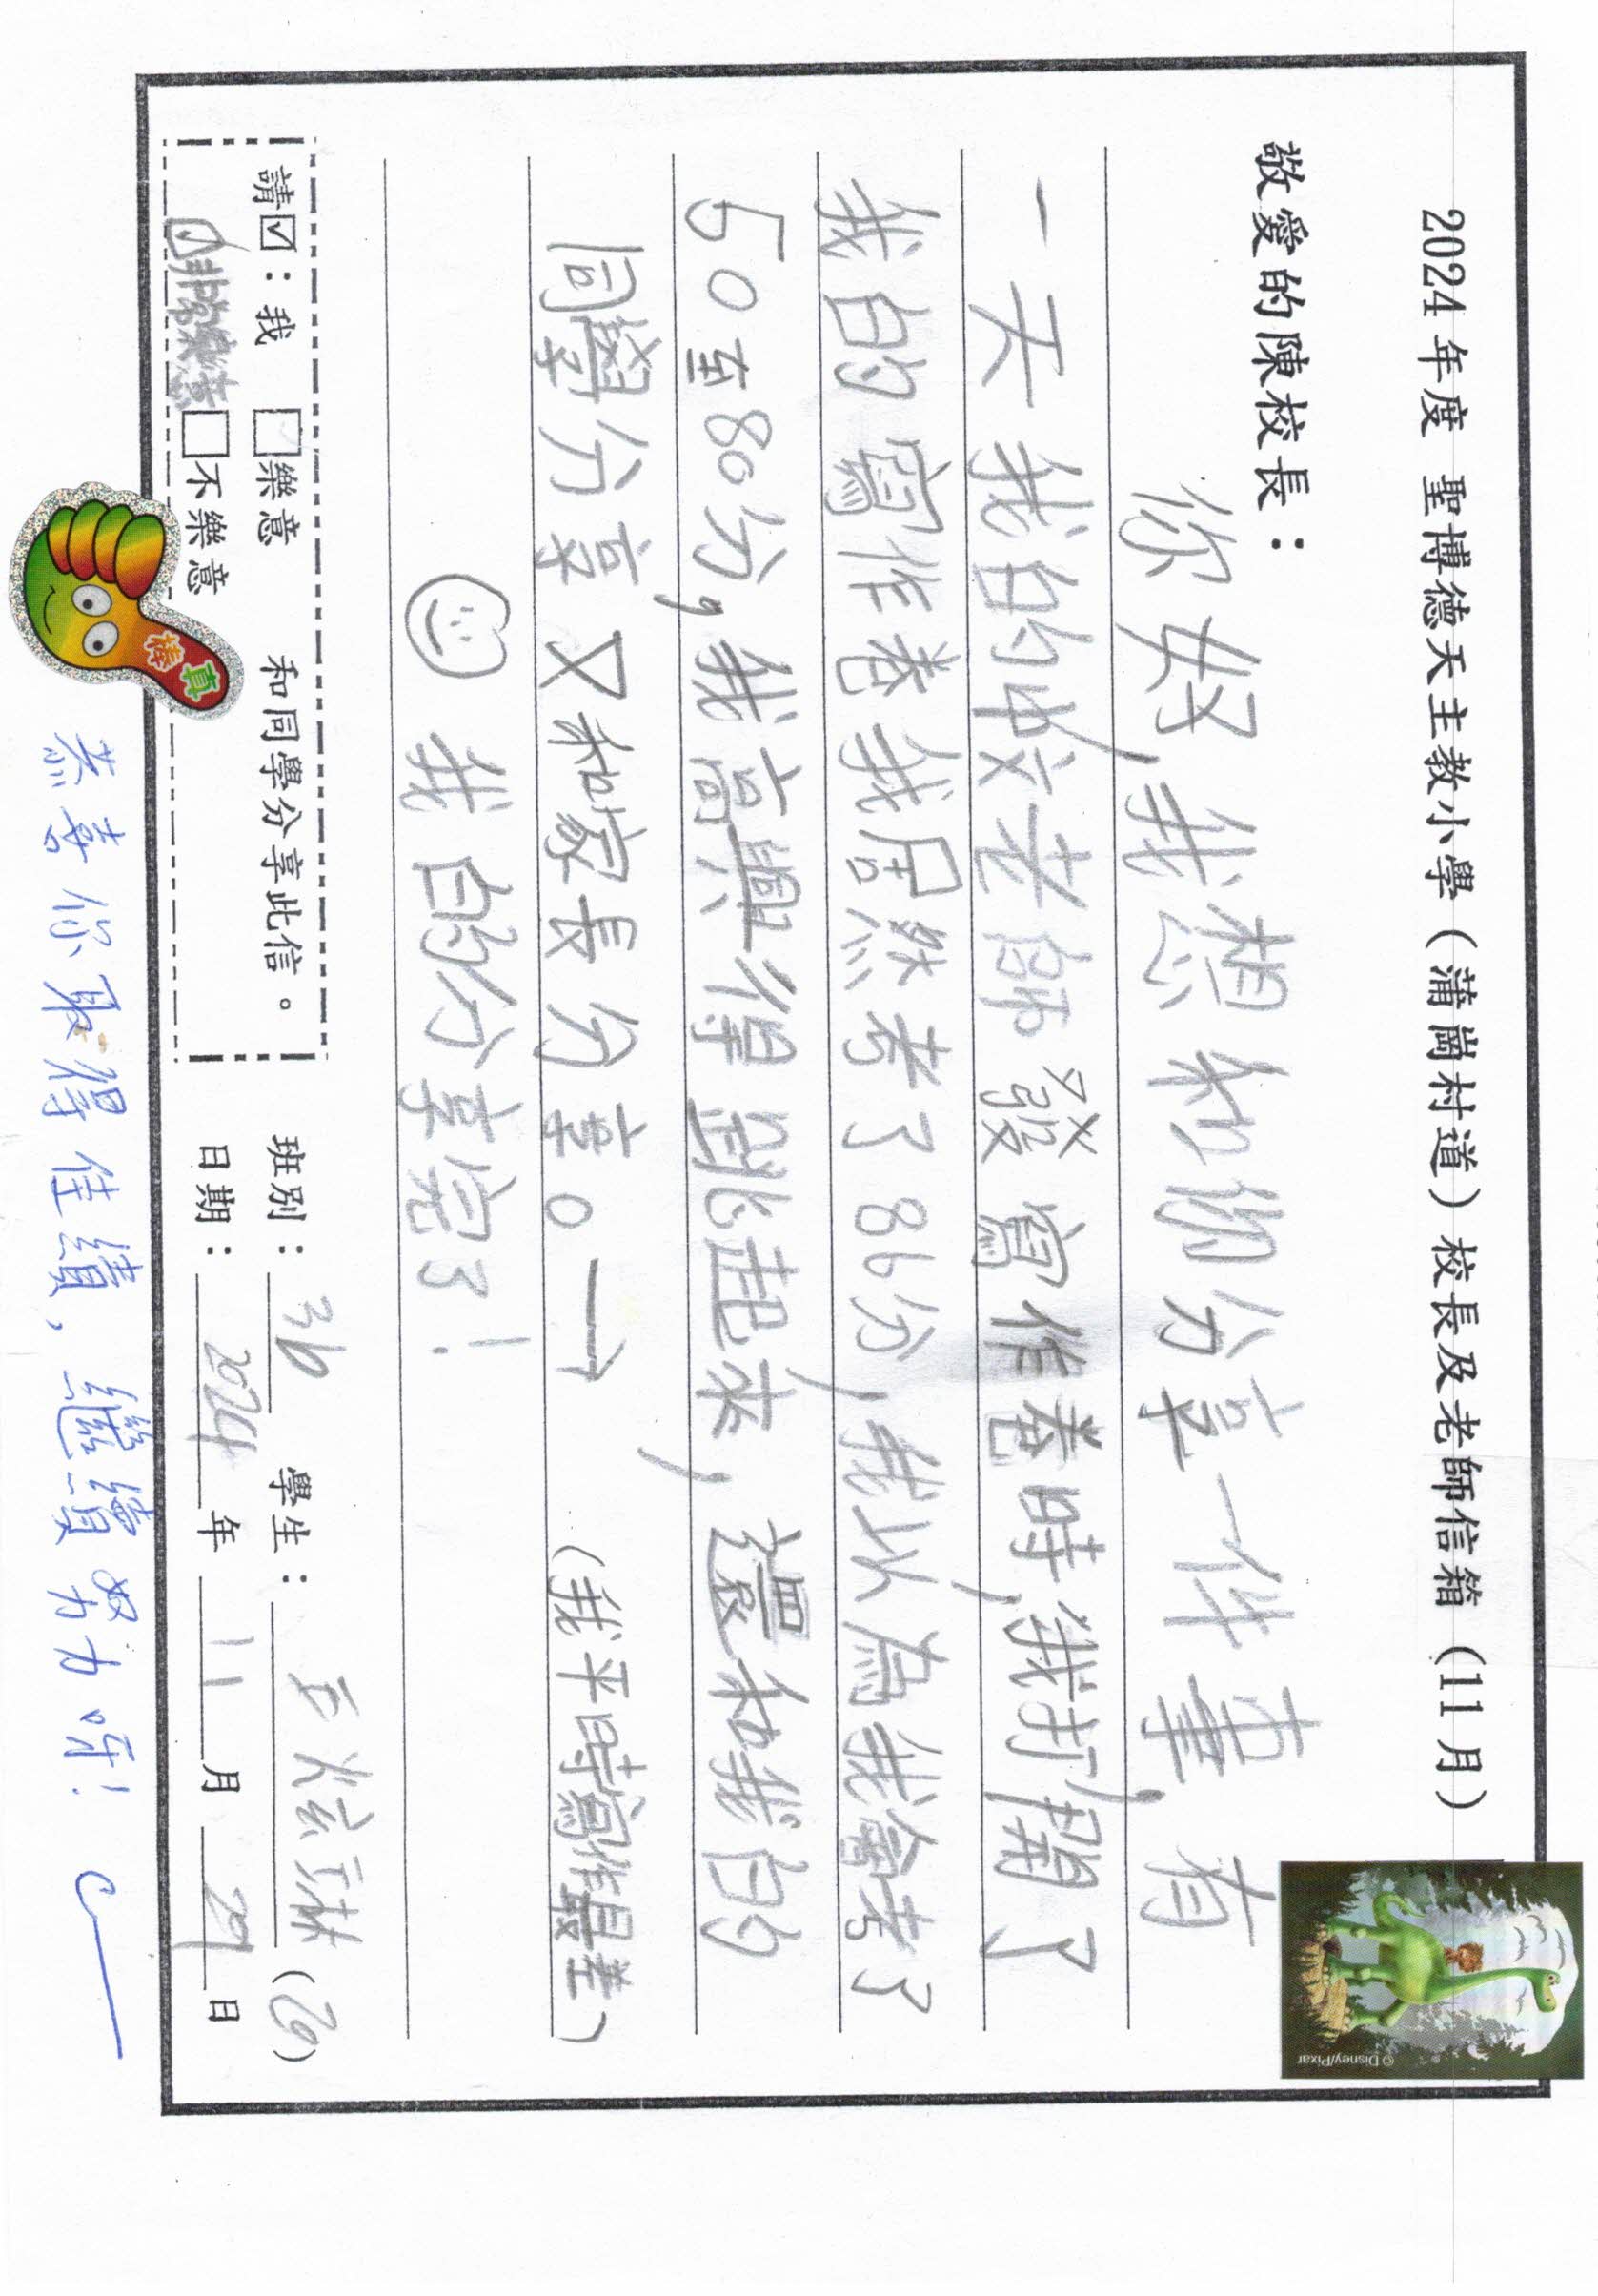 2024年度 聖博德天主教小學（蒲崗村道）校長及老師信箱（11月）
敬愛的陳校長：
你好,我想和你分享一件事,有
一天我的中文老師發寫作卷時,我打開了
我的寫作卷我居然考了86分,我以為我會考了
50至80分,我高興得跳起來,還和我的
同學分享又和家長分享。→（我平時寫作最差）
我的分享完了!
請☑：我 □樂意 和同學分享此信。
☑非常樂意 □不樂意
班別：3b 學生： (26)
日期：2024年11月29日
真棒
恭喜你取得佳績，繼續努力呀!
©Disney/Pixar